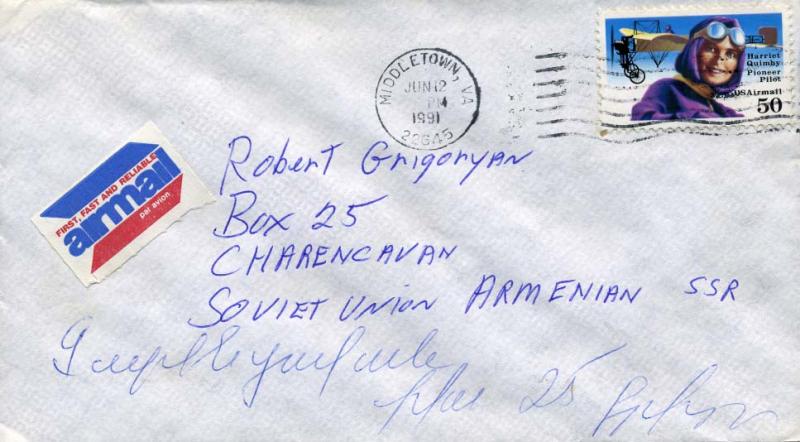 MIDDLETOWN, VA
JUN 12
PM
1991
22645
Harriet
Quimby
Pioneer
Pilot
USAirmail
50
FIRST, FAST AND RELIABLE
airmail
par avion
Robert Grigoryan
Box 25
CHARENCAVAN
SOVIET UNION ARMENIAN SSR
25